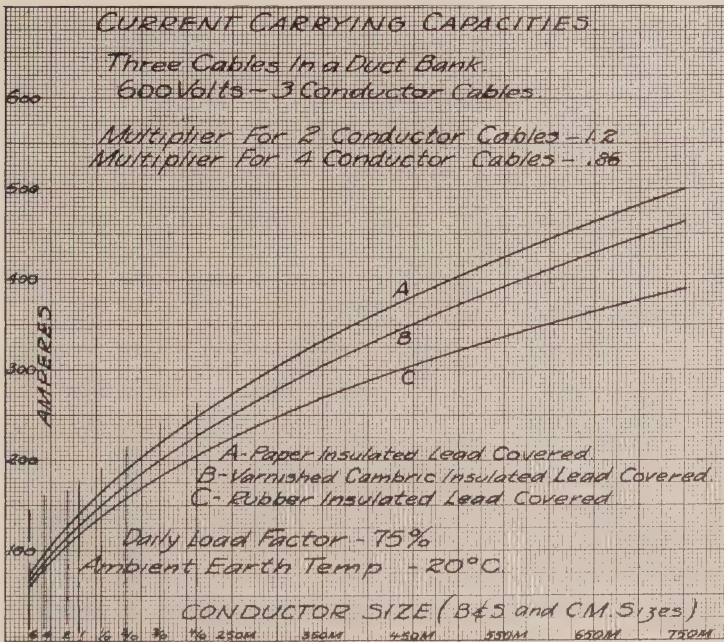 CURRENT CARRYING CAPACITIES
Three Cables In a Duct Bank.
600 Volts - 3 Conductor Cables
Multiplier For 2 Conductor Cables - 1.2
Multiplier For 4 Conductor Cables - .86
600
500
400
300
200
100
AMPERES
A
B
C
A-Paper Insulated Lead Covered.
B-Varnished Cambric Insulated Lead Covered.
C-Rubber Insulated Lead Covered
Daily Load Factor - 75%
Ambient Earth Temp - 20°C.
CONDUCTOR SIZE (B&S and CM Sizes)
6 4 2 1 1/0 2/0 3/0 4/0 250M 350M 450M 550M 650M 750M